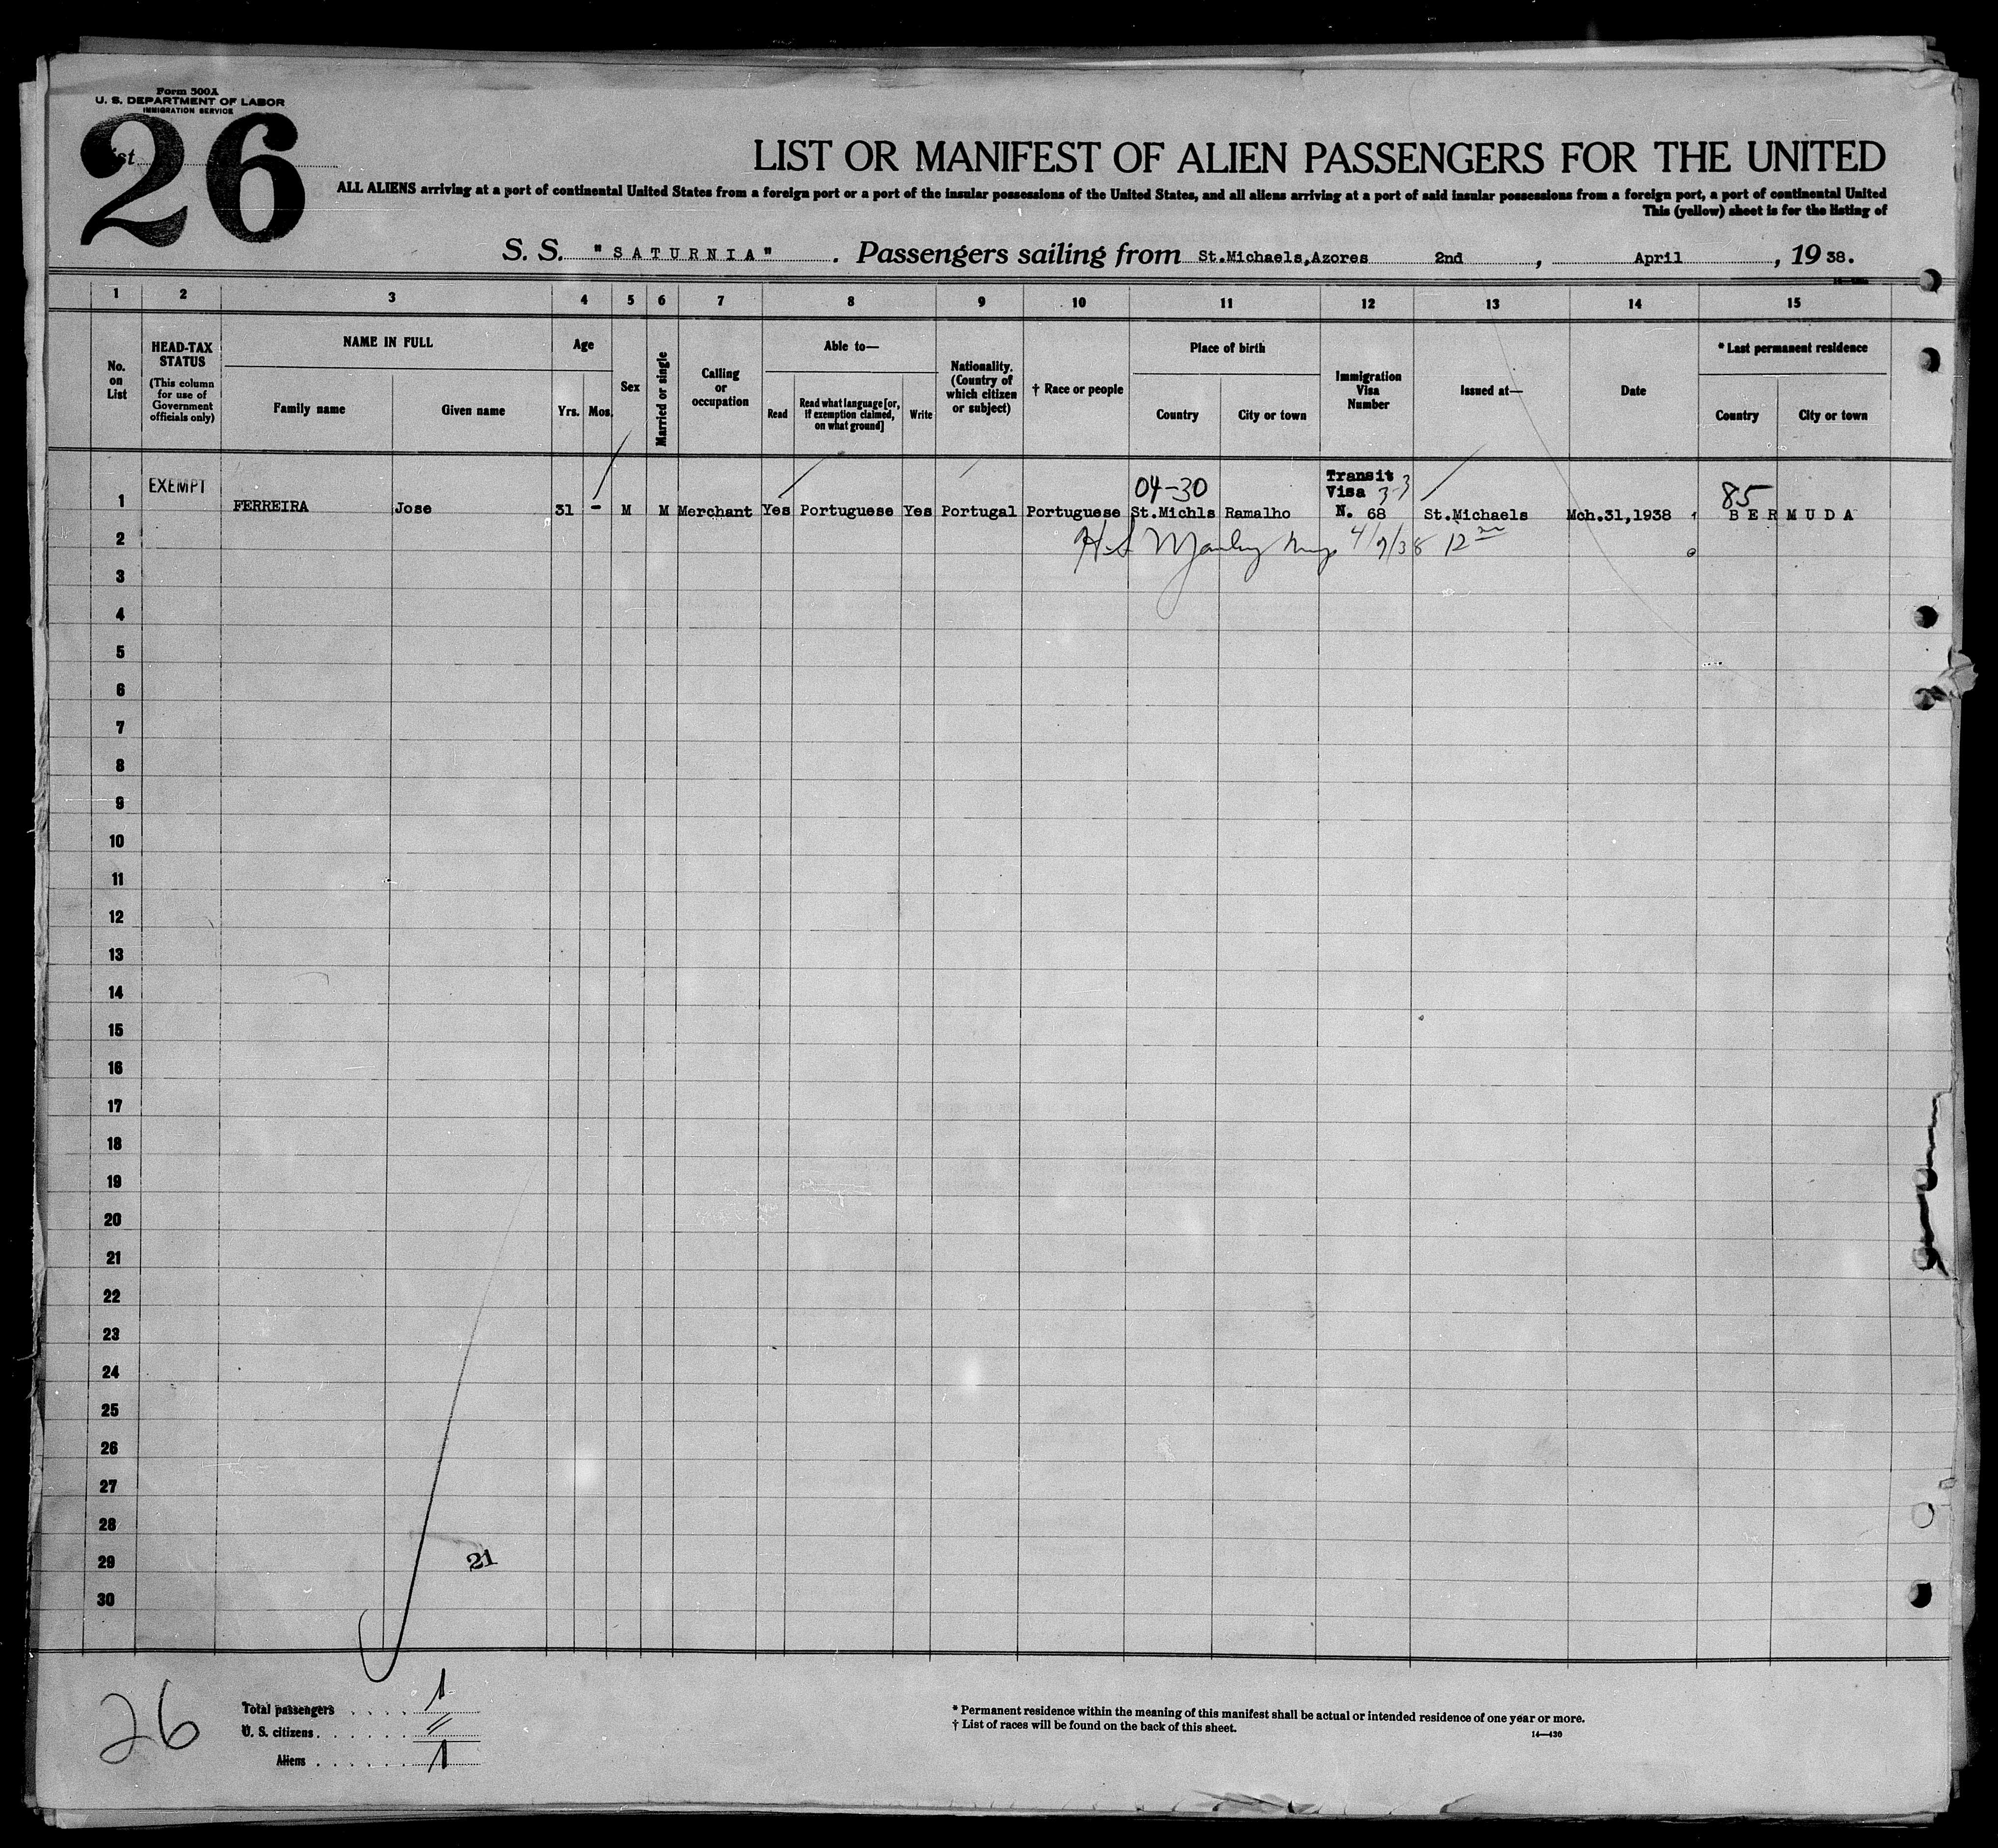 Form 500A
U. S. DEPARTMENT OF LABOR
IMMIGRATION SERVICE
26
LIST OR MANIFEST OF ALIEN PASSENGERS FOR THE UNITED
ALL ALIENS arriving at a port of continental United States from a foreign port or a port of the insular possessions of the United States, and all aliens arriving at a port of said insular possessions from a foreign port, a port of continental United
This (yellow) sheet is for the listing of
S. S. "SATURNIA". Passengers sailing from St.Michaels,Azores 2nd, April, 1938.
1 2 3 4 5 6 7 8 9 10 11 12 13 14 15
No. on List
HEAD-TAX STATUS
(This column for use of Government officials only)
NAME IN FULL
Family name
Given name
Age
Yrs. Mos.
Sex
Married or single
Calling or occupation
Able to—
Read
Read what language [or, if exemption claimed, on what ground]
Write
Nationality. (Country of which citizen or subject)
† Race or people
Place of birth
Country
City or town
Immigration Visa Number
Issued at—
Date
* Last permanent residence
Country
City or town
04-30 Transit Visa 3-3 85
1 EXEMPT FERREIRA Jose 31 - M M Merchant Yes Portuguese Yes Portugal Portuguese St.Michls Ramalho N. 68 St.Michaels Mch.31,1938 BERMUDA
2 4/9/38 12
3
4
5
6
7
8
9
10
11
12
13
14
15
16
17
18
19
20
21
22
23
24
25
26
27
28
29 21
30
26
Total passengers . . . . 1
U. S. citizens . . . . . . "
Aliens . . . . . . 1
* Permanent residence within the meaning of this manifest shall be actual or intended residence of one year or more.
† List of races will be found on the back of this sheet.
14—430